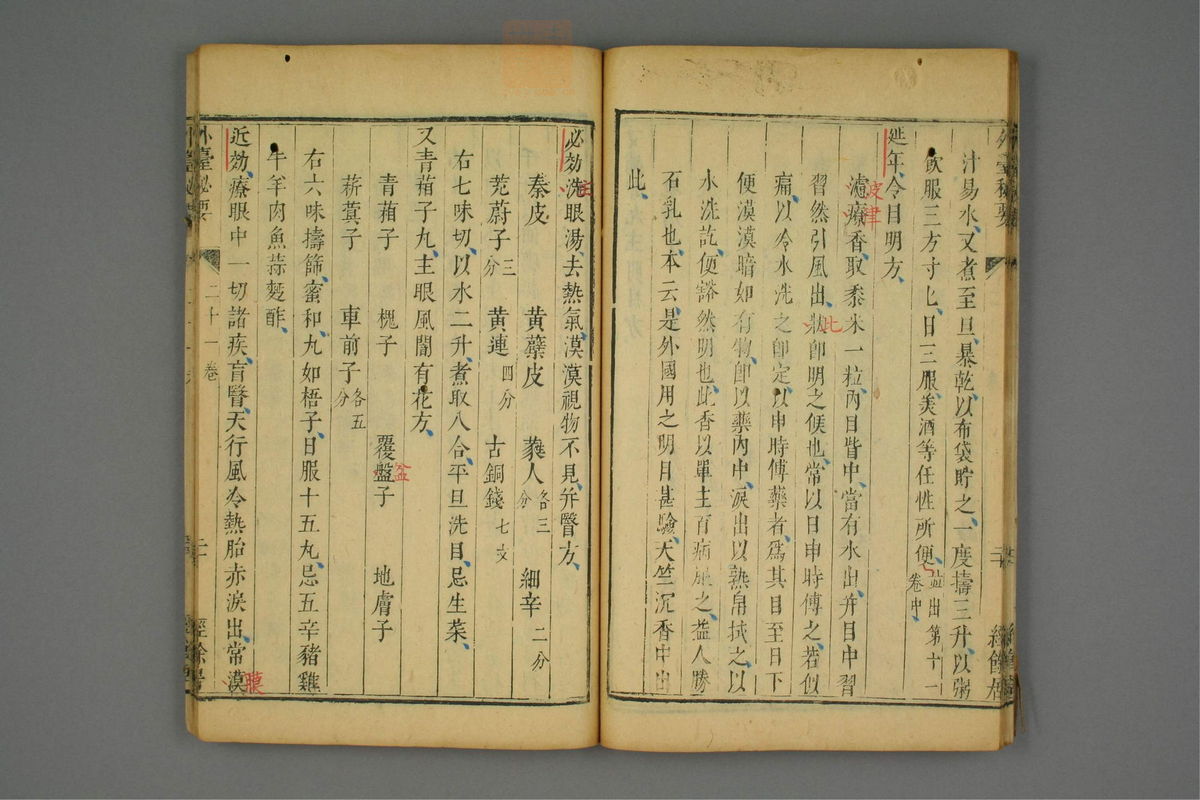 汁易水又煮至旦暴乾以布袋貯之一度擣三升以粥
飲服三方寸匕日三服美酒等任性所便並出第十一卷中
延年令目明方
濾療香取黍米一粒內目眥中當有水出幷目中習
波律
習然引風出狀卽明之候也常以日申時傅之若似
此
痛以冷水洗之卽定以申時傅藥者爲其目至日下
便漠漠暗如有物卽以藥內中淚出以熟帛拭之以
水洗訖便豁然明也此香以單主百病服之益人勝
石乳也本云是外國用之明目甚驗天竺沉香中出
此
必効洗眼湯去熱氣漠漠視物不見幷瞖方
秦皮 黃蘗皮 蕤人各三分 細辛二分
茺蔚子三分 黃連四分 古銅錢七文
右七味切以水二升煮取八合平旦洗目忌生菜
又靑葙子丸主眼風闇有花方
靑葙子 槐子 覆盤子 地膚子
盆
菥蓂子 車前子各五分
右六味擣篩蜜和丸如梧子日服十五丸忌五辛豬雞
牛羊肉魚蒜麪酢
近効療眼中一切諸疾盲瞖天行風冷熱胎赤淚出常漠
膜
外臺秘要 二十一卷 二 經餘居